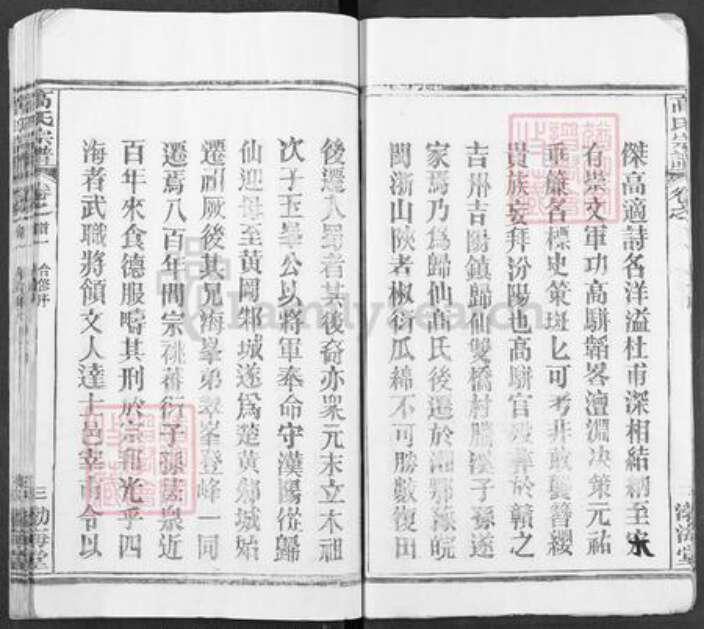 高氏宗譜
卷之
渤海堂
傑高適詩名洋溢杜甫深相結納至宋
有崇文軍功高駢韜畧澶淵决策元祐
垂簾各標史策班匕可考非敢襲簪纓
貴族妄拜汾陽也高駢官 葬於贛之
吉州吉陽鎮歸仙雙橋村勝溪子孫遂
家焉乃為歸仙高氏後遷於湘鄂豫皖
閩浙山陝者椒衍瓜綿不可勝數復田
後遷入蜀者其後裔亦衆元末立木祖
次子玉峯公以將軍奉命守漢陽從歸
仙迎母至黃岡邾城遂爲楚黃邾城始
遷祖厥後其兄海峯弟翠峯登峰一同
遷焉八百年間宗祧蕃衍子孫 衆近
百年來食德服疇其刑於宗和光乎四
海者武職將領文人達士邑宰市令以
高氏宗譜
卷
三 渤海堂
FamilySearch